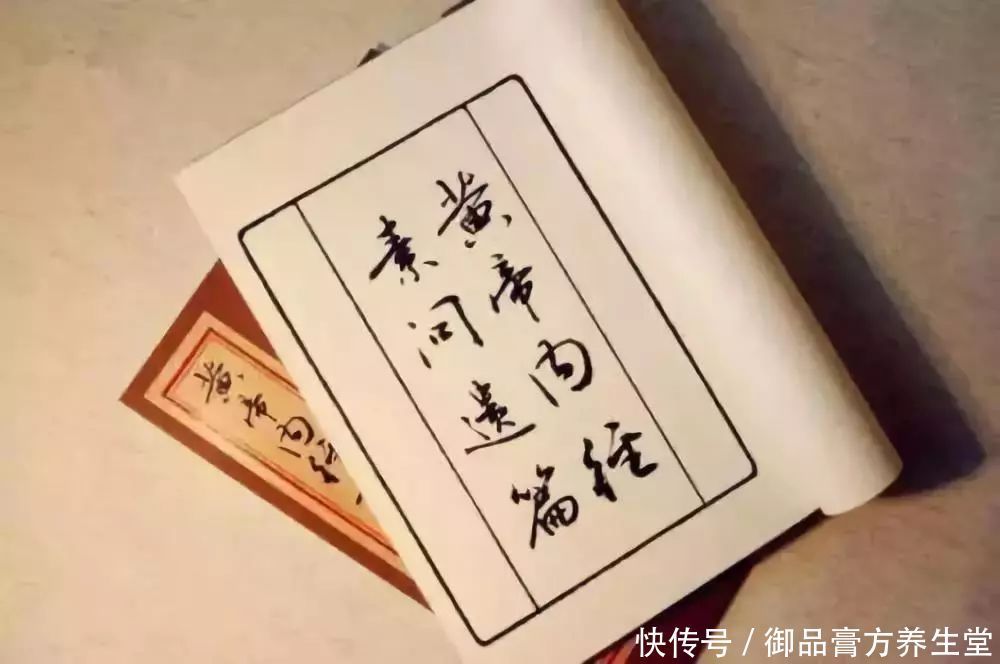 黄帝内经
素问遗篇
黄帝内经
快传号 / 御品膏方养生堂